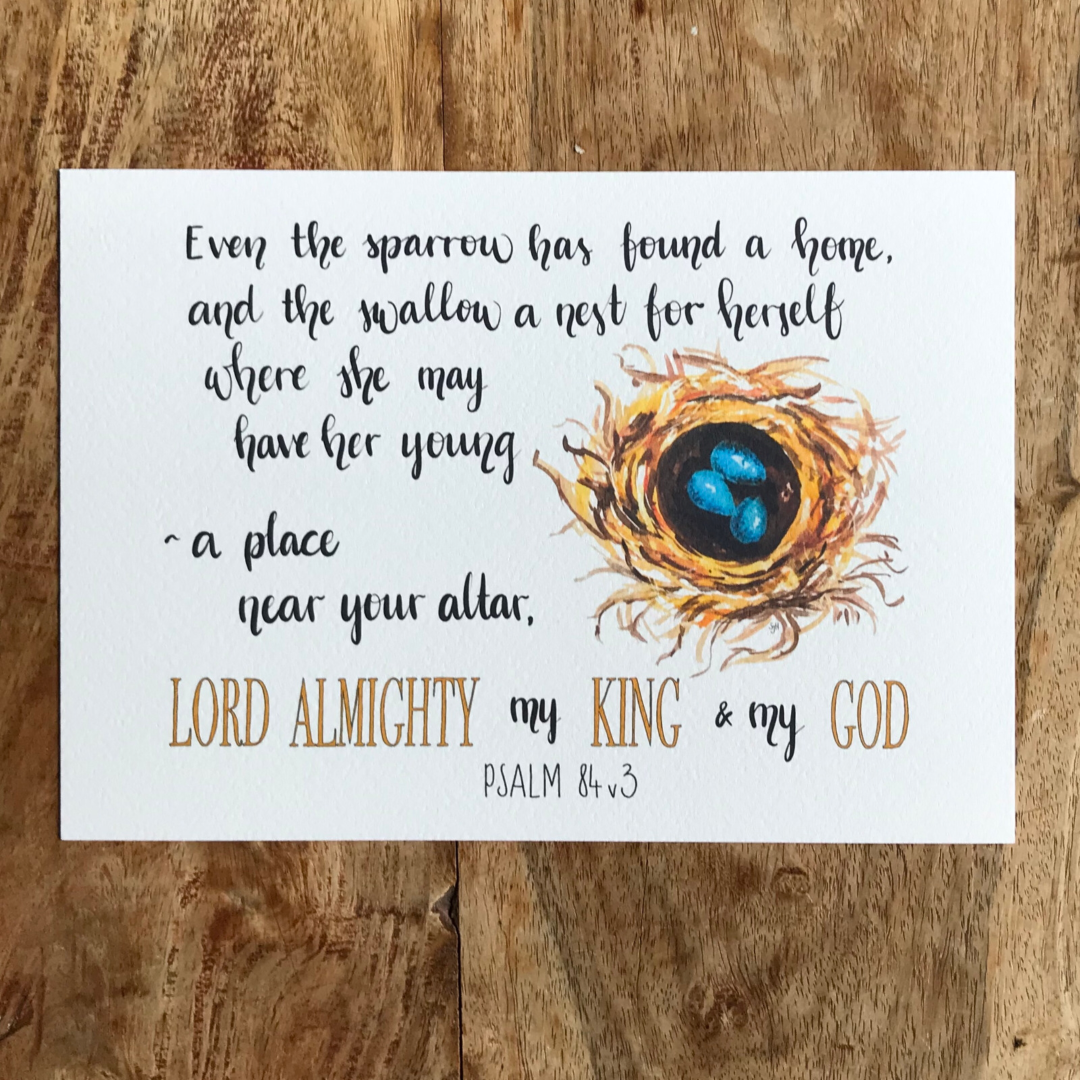 Even the sparrow has found a home,
and the swallow a nest for herself
where she may
have her young
~ a place
near your altar,
LORD ALMIGHTY my KING & my GOD
PSALM 84 v3